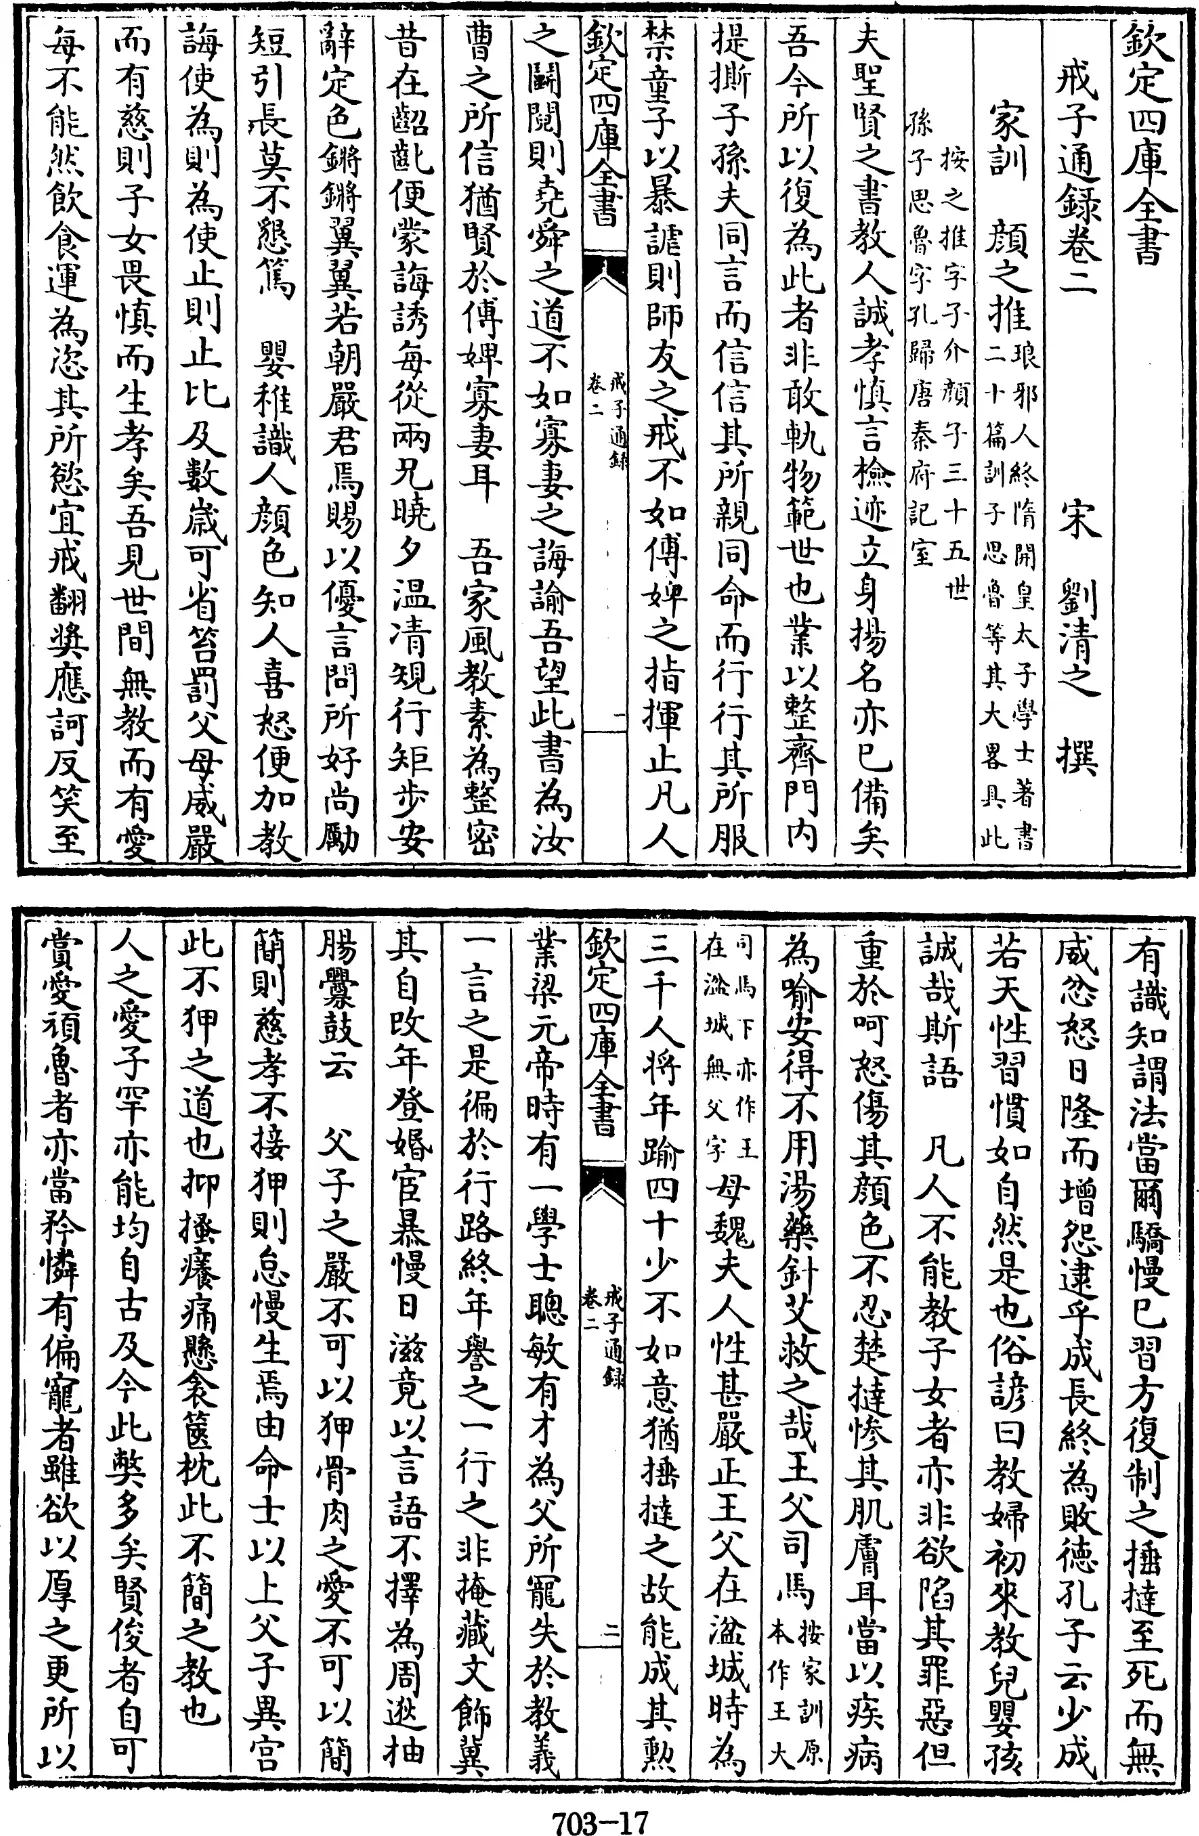 欽定四庫全書
戒子通錄卷二
宋 劉清之 撰
家訓 顏之推琅邪人終隋開皇太子學士著書
二十篇訓子思魯等其大畧具此
按之推字子介顏子三十五世
孫子思魯字孔歸唐秦府記室
夫聖賢之書教人誠孝慎言檢迹立身揚名亦已備矣
吾今所以復為此者非敢軌物範世也業以整齊門內
提撕子孫夫同言而信信其所親同命而行行其所服
禁童子以暴謔則師友之戒不如傅婢之指揮止凡人
欽定四庫全書
戒子通錄
卷二
一
之鬭鬩則堯舜之道不如寡妻之誨諭吾望此書為汝
曹之所信猶賢於傅婢寡妻耳 吾家風教素為整密
昔在齠齔便蒙誨誘每從兩兄曉夕溫凊規行矩步安
辭定色鏘鏘翼翼若朝嚴君焉賜以優言問所好尚勵
短引長莫不懇篤 嬰稚識人顏色知人喜怒便加教
誨使為則為使止則止比及數歲可省笞罰父母威嚴
而有慈則子女畏慎而生孝矣吾見世間無教而有愛
每不能然飲食運為恣其所慾宜戒翻奬應訶反笑至
有識知謂法當爾驕慢已習方復制之捶撻至死而無
威忿怒日隆而增怨逮乎成長終為敗德孔子云少成
若天性習慣如自然是也俗諺曰教婦初來教兒嬰孩
誠哉斯語 凡人不能教子女者亦非欲陷其罪惡但
重於呵怒傷其顏色不忍楚撻慘其肌膚耳當以疾病
為喻安得不用湯藥針艾救之哉王父司馬按家訓原
本作王大
司馬下亦作王
在湓城無父字母魏夫人性甚嚴正王父在湓城時為
三千人將年踰四十少不如意猶捶撻之故能成其勲
欽定四庫全書
戒子通錄
卷二
二
業梁元帝時有一學士聰敏有才為父所寵失於教義
一言之是徧於行路終年譽之一行之非掩藏文飾冀
其自改年登婚宦暴慢日滋竟以言語不擇為周逖抽
腸釁鼓云 父子之嚴不可以狎骨肉之愛不可以簡
簡則慈孝不接狎則怠慢生焉由命士以上父子異宮
此不狎之道也抑搔癢痛懸衾篋枕此不簡之教也
人之愛子罕亦能均自古及今此弊多矣賢俊者自可
賞愛頑魯者亦當矜憐有偏寵者雖欲以厚之更所以
703-17